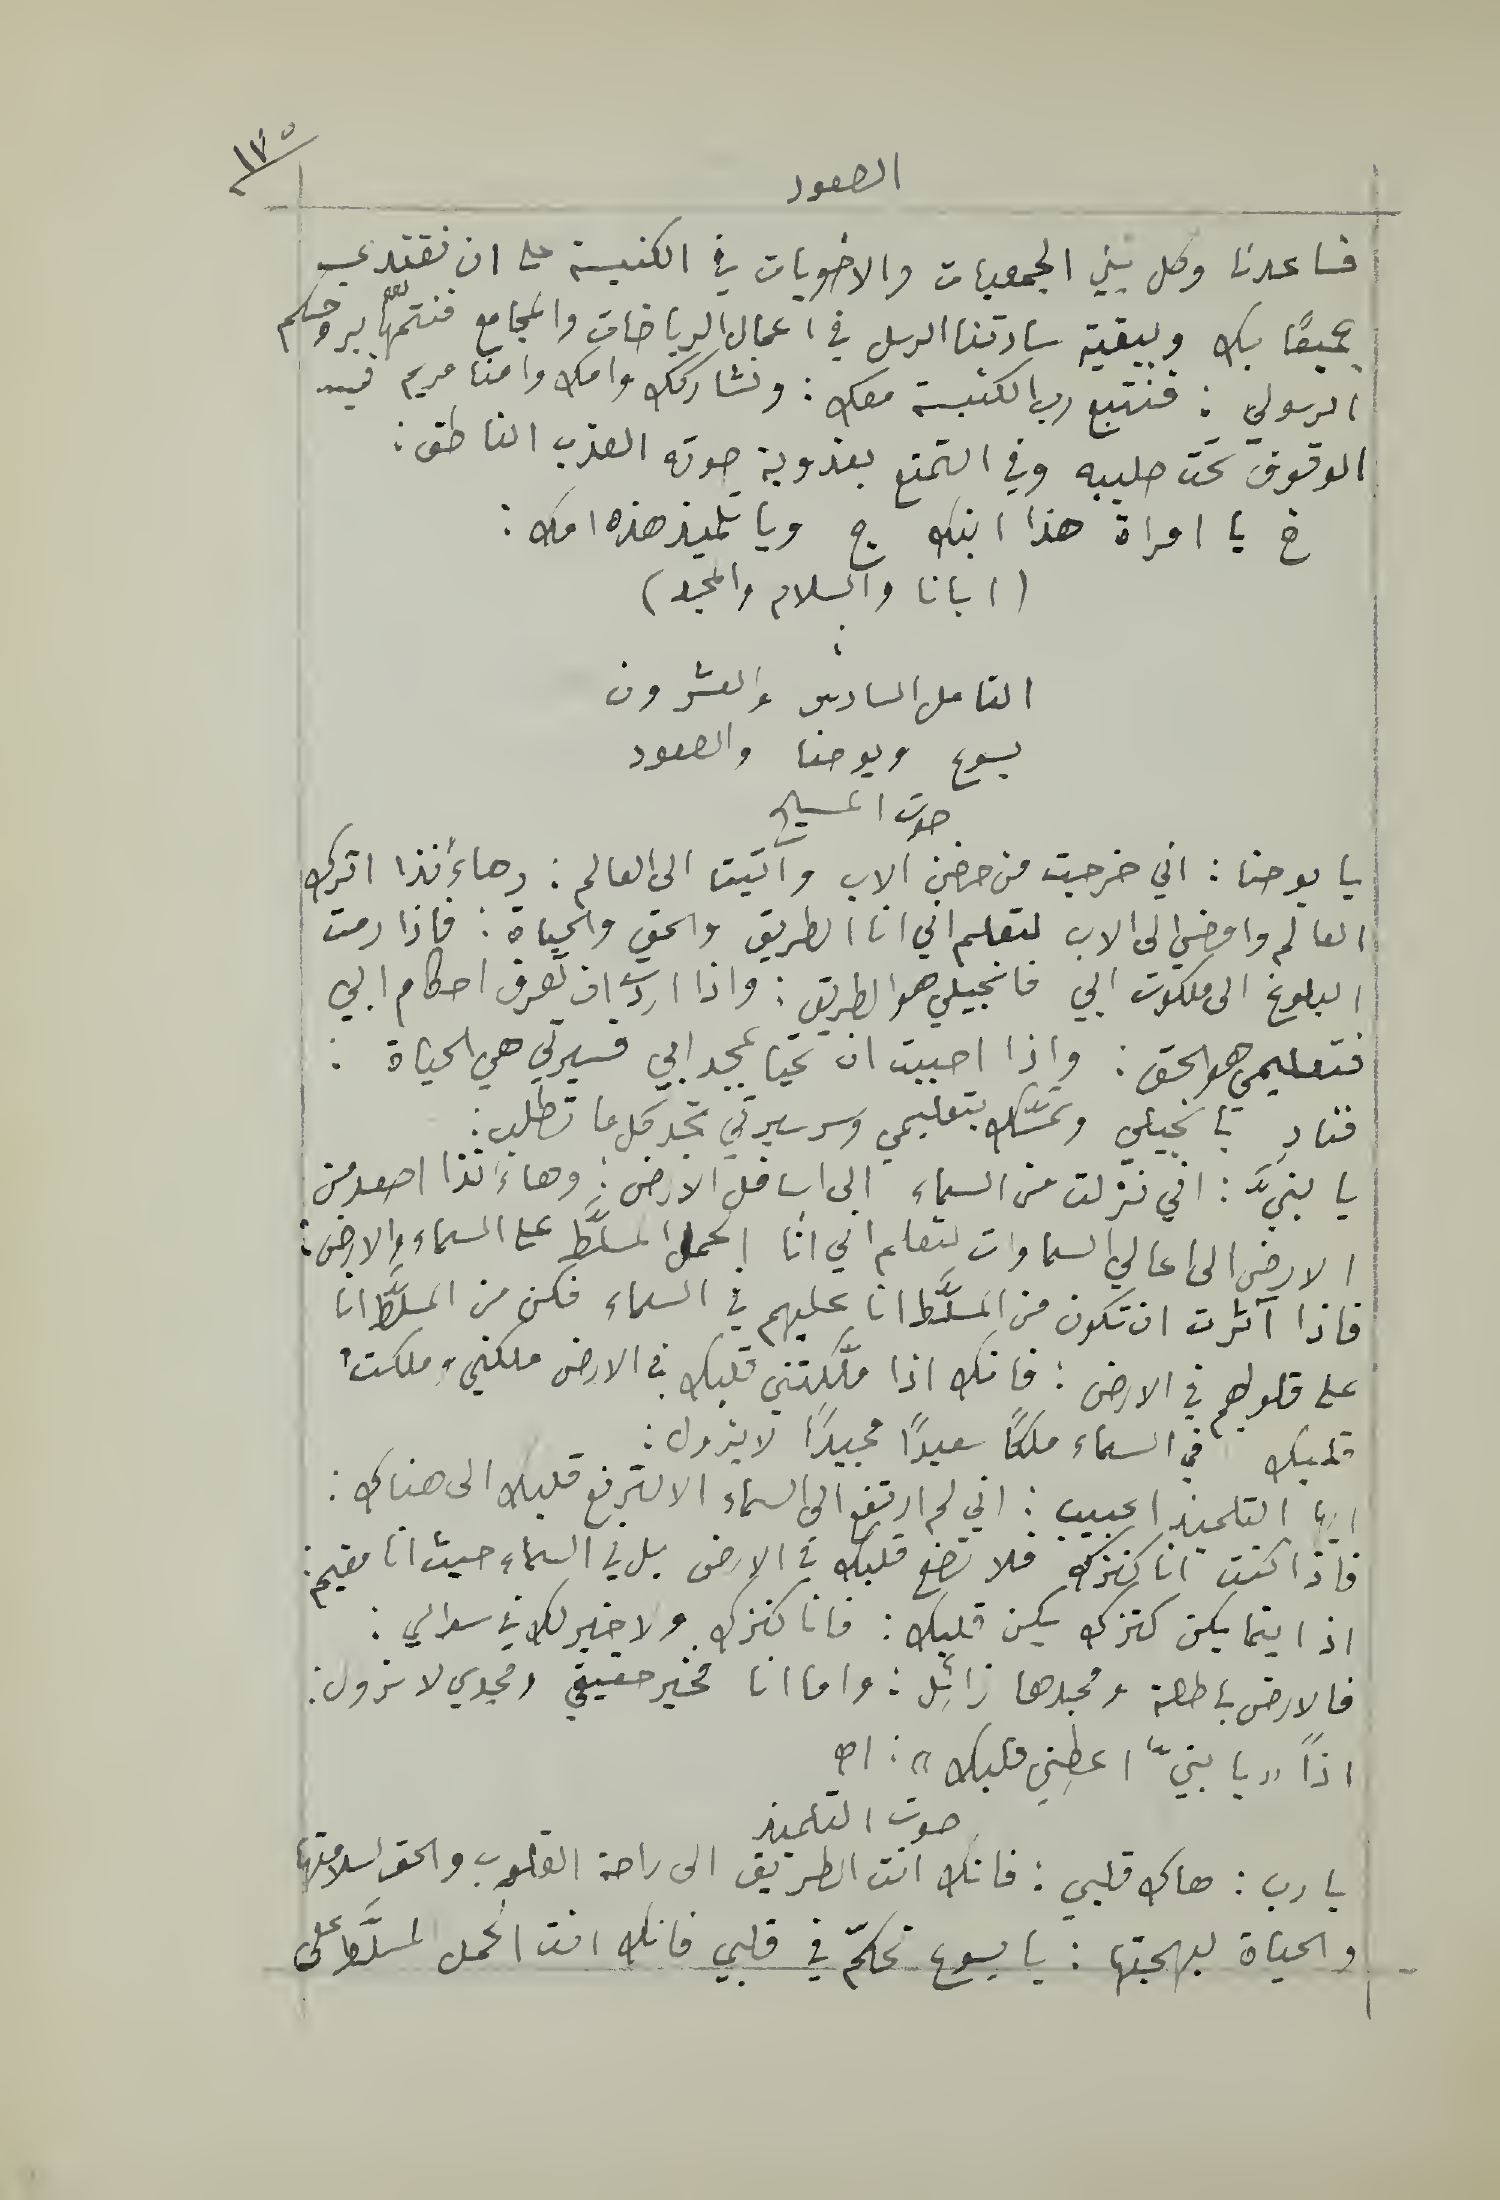 ١٧٥
الصعود
فساعدنا وكل بني الجمعيات والاخويات في الكنيسة على ان نقتدي
جميعًا بك وببقية سادتنا الرسل في اعمال الرياضات والمجامع فنتمها بروحكم
الرسولي : فنتبع رب الكنيسة معك : ونشاركك وامك وامنا مريم في
الوقوف تحت صليبه وفي التمتع بعذوبة صوته العذب الناطق :
خ يا امراة هذا ابنك ج ويا تلميذ هذه امك :
(ابانا والسلام والمجد)
التامل السادس والعشرون
يسوع ويوحنا والصعود
صوت المسيح
يا يوحنا : اني خرجت من حضن الاب وأتيت الى العالم : وهاءنذا اترك
العالم وامضي الى الاب لتعلم اني انا الطريق والحق والحياة : فاذا رمت
البلوغ الى ملكوت ابي فانجيلي هو الطريق : واذا اردت ان تعرف احكام ابي
فتعليمي هو الحق : واذا احببت ان تحيا بمجد ابي فسيرتي هي الحياة :
فنادِ بانجيلي وتمسَّك بتعليمي وسر سيرتي تجد كل ما تطلب :
يا بنيَّ : اني نزلت من السماء الى اسافل الارض : وهاءنذا اصعد من
الارض الى اعالي السماوات لتعلم اني انا الحمل المسلَّط على السماء والارض :
فاذا آثرت ان تكون من المسلَّط انا عليهم في السماء فكن من المسلَّط انا
على قلوبهم في الارض : فانك اذا ملَّكتني قلبك في الارض ملكني وملكت
قلبك في السماء ملكًا سعيدًا مجيدًا لا يزول :
ايها التلميذ الحبيب : اني لم ارتفع الى السماء الا لترفع قلبك الى هناك :
فاذا كنت انا كنزك فلا تضع قلبك في الارض بل في السماء حيث انا مقيم :
اذ اينما يكن كنزك يكن قلبك : فانا كنزك ولا خير لك في سوالي :
فالارض باطلة ومجدها زائل : واما انا فخير حقيقي ومجدي لا يزول :
اذًا «يا بنيّ اعطِني قلبك» : اه
صوت التلميذ
يا رب : هاك قلبي : فانك انت الطريق الى راحة القلوب والحق لسلامتها
والحياة لبهجتها : يا يسوع تحكّم في قلبي فانك انت الحمل المسلَّط على